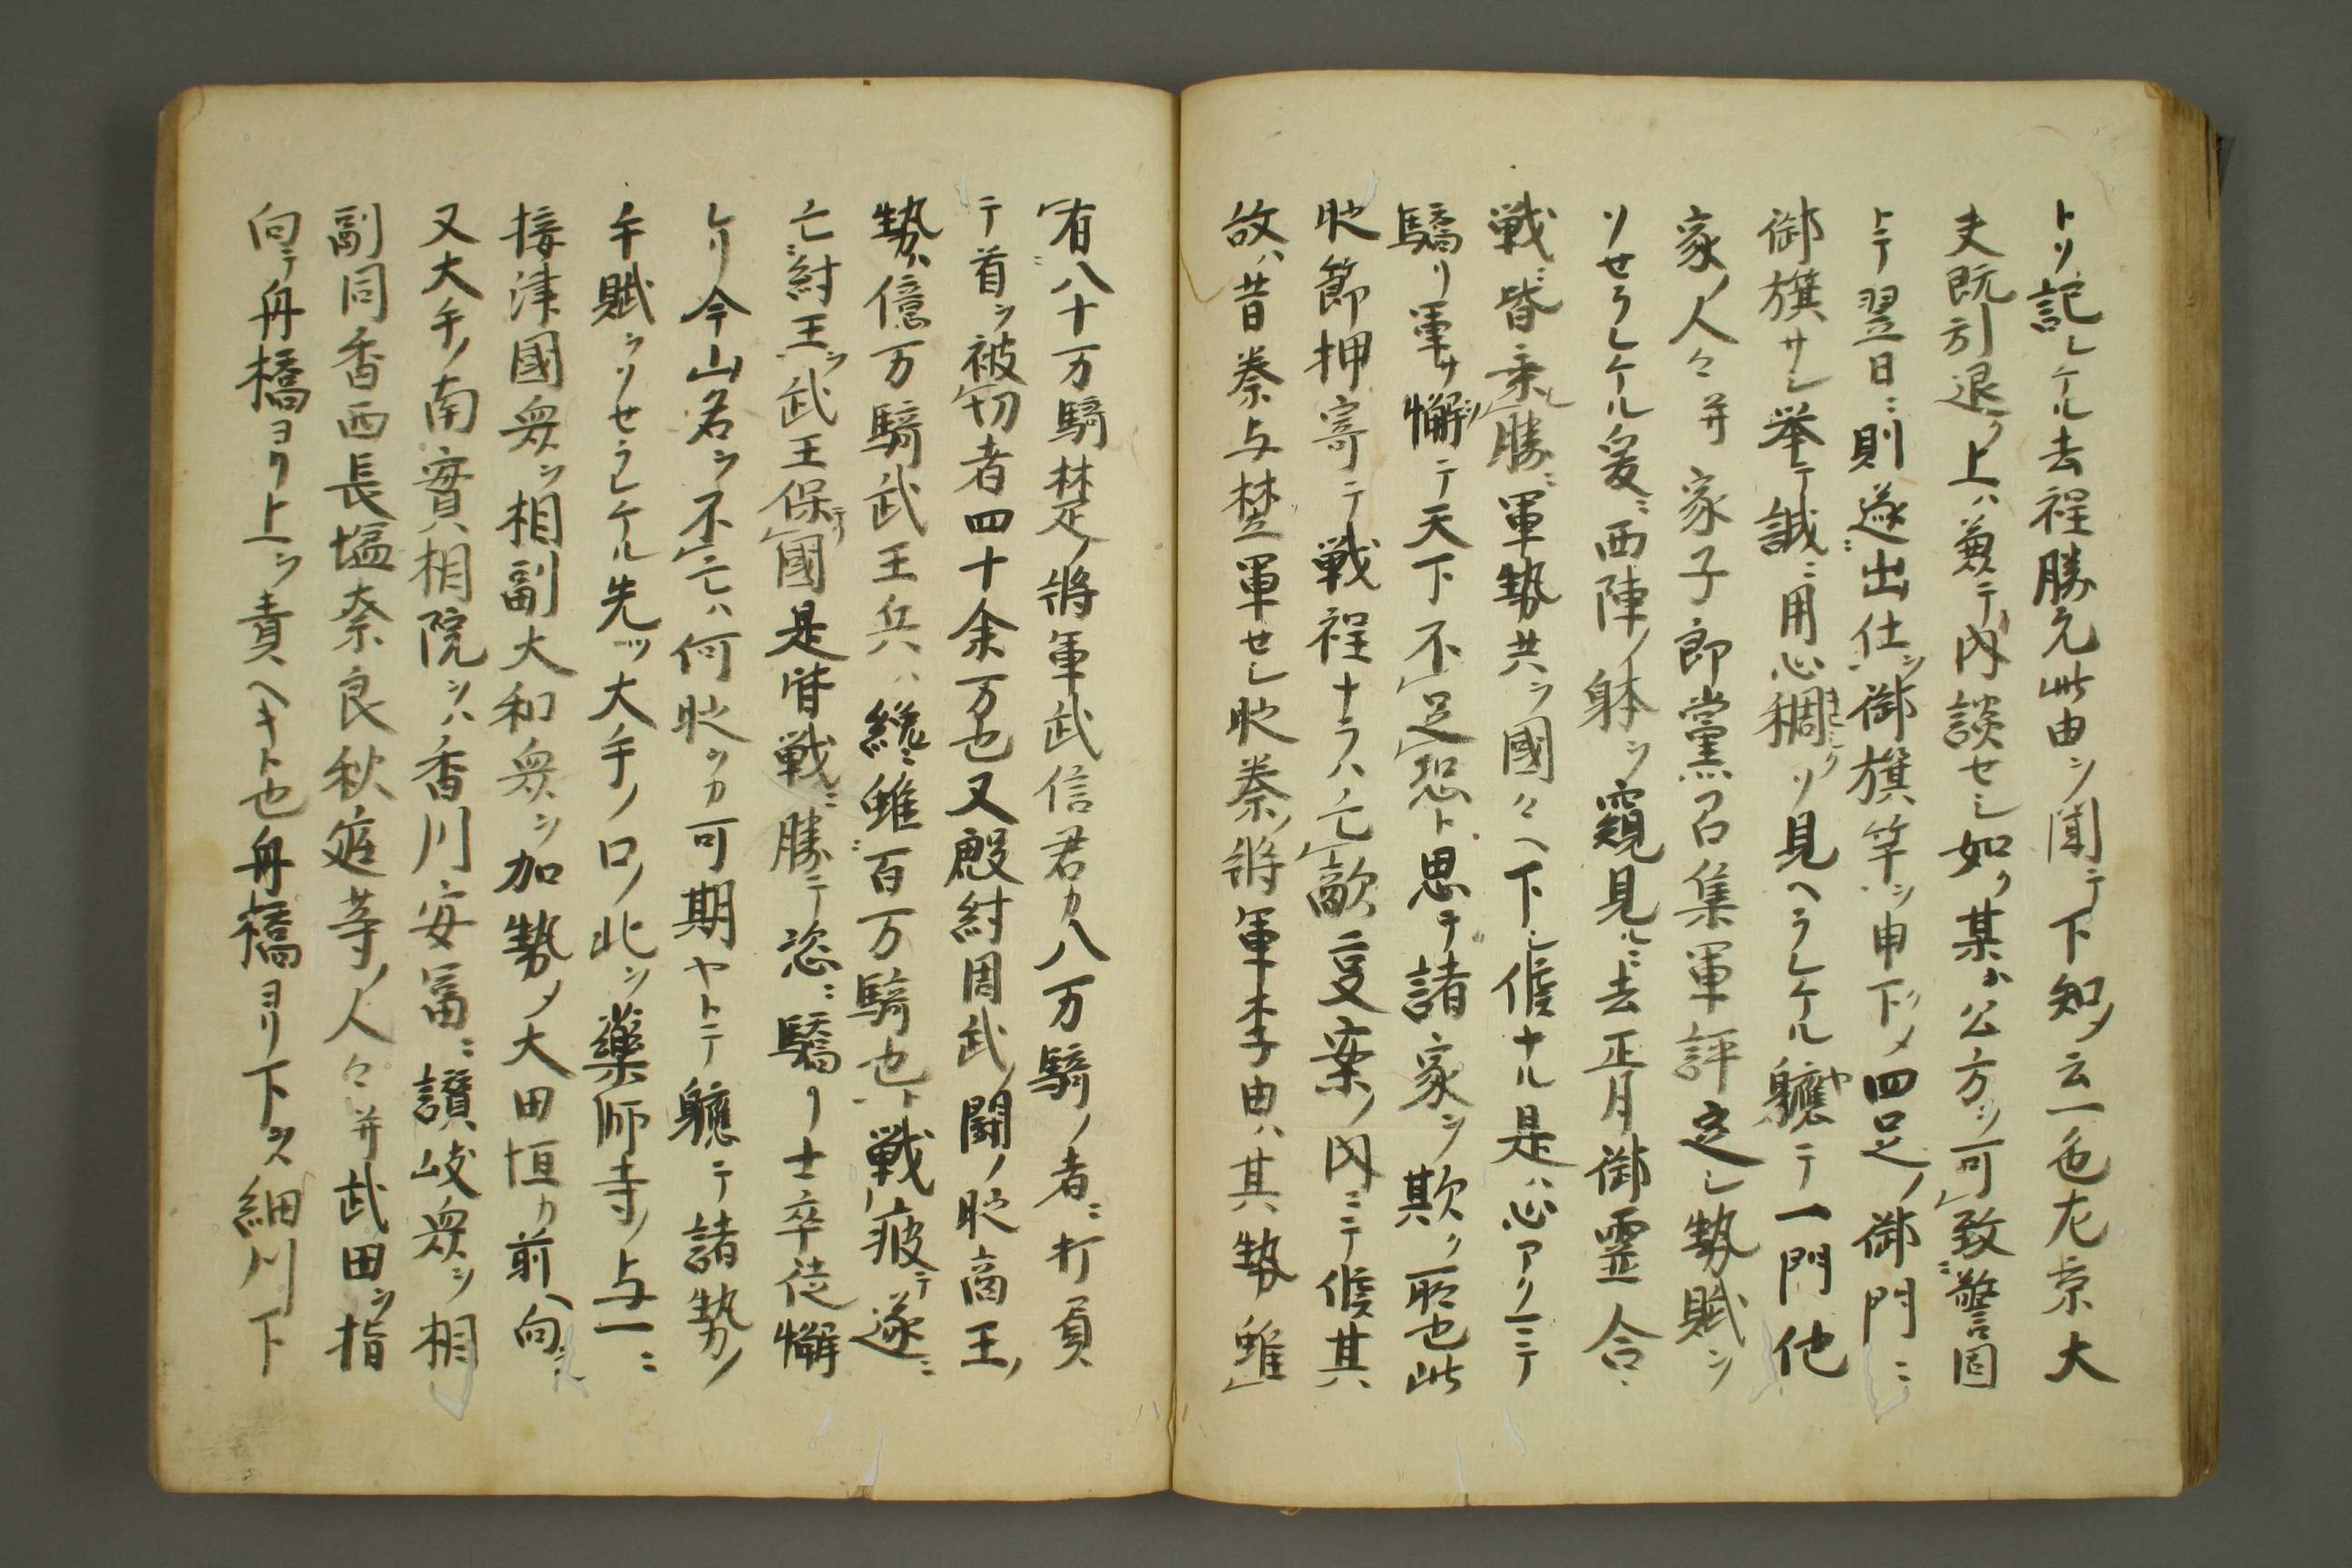 トソ記レケル去程勝元此由ヲ聞テ下知メ云一色左京大
夫既引退ク上ハ兼テ内談セシ如ク某ガ公方ヲ可致警固
トテ翌日ニ則遂出仕ヲ御旗竿ヲ申下メ四足ノ御門ニ
御旗サシ挙テ誠ニ用心稠クソ見ヘラレケル軈テ一門他
家ノ人々并家子郎黨召集軍評定シ勢賦ヲ
ソセラレケル爰ニ西陣ノ躰ヲ窺見ルニ去正月御霊合
戦ニ皆乗勝ニ軍勢共ヲ國々ヘ下シ候ナル是ハ心アクニテ
驕リ軍サ懈テ天下不足恐ト思テ諸家ヲ欺ク所也此
時節押寄テ戦程ナラハ亡敵ヿ案ノ内ニテ候其
故ハ昔秦与楚軍セシ時秦ノ将軍李由ハ其勢雖
有八十万騎楚ノ将軍武信君カ八万騎ノ者ニ打負
テ首ヲ被切者四十余万也又殷紂周武ノ闘ノ時商王ノ
勢ハ億万騎武王兵ハ纔ニ雖百万騎也ト戦ヒ疲テ遂ニ
亡紂王ヲ武王保國是皆戦ニ勝テ恣ニ驕リ士卒徒懈
レリ今山名ヲ不亡ハ何時ヲカ可期ヤトテ軈テ諸勢ノ
手賦ヲソセラレケル先ッ大手ノ口ノ北ヲ薬師寺ノ与一ニ
接津國衆ヲ相副大和衆ヲ加勢メ大田垣カ前ヘ向ラル
又大手ノ南實相院ヲハ香川安冨ニ讃岐衆ヲ相
副同香西長塩奈良秋庭等ノ人々并武田ヲ指
向テ舟橋ヨリ上ヲ責ヘキト也舟橋ヨリ下ヲハ細川下